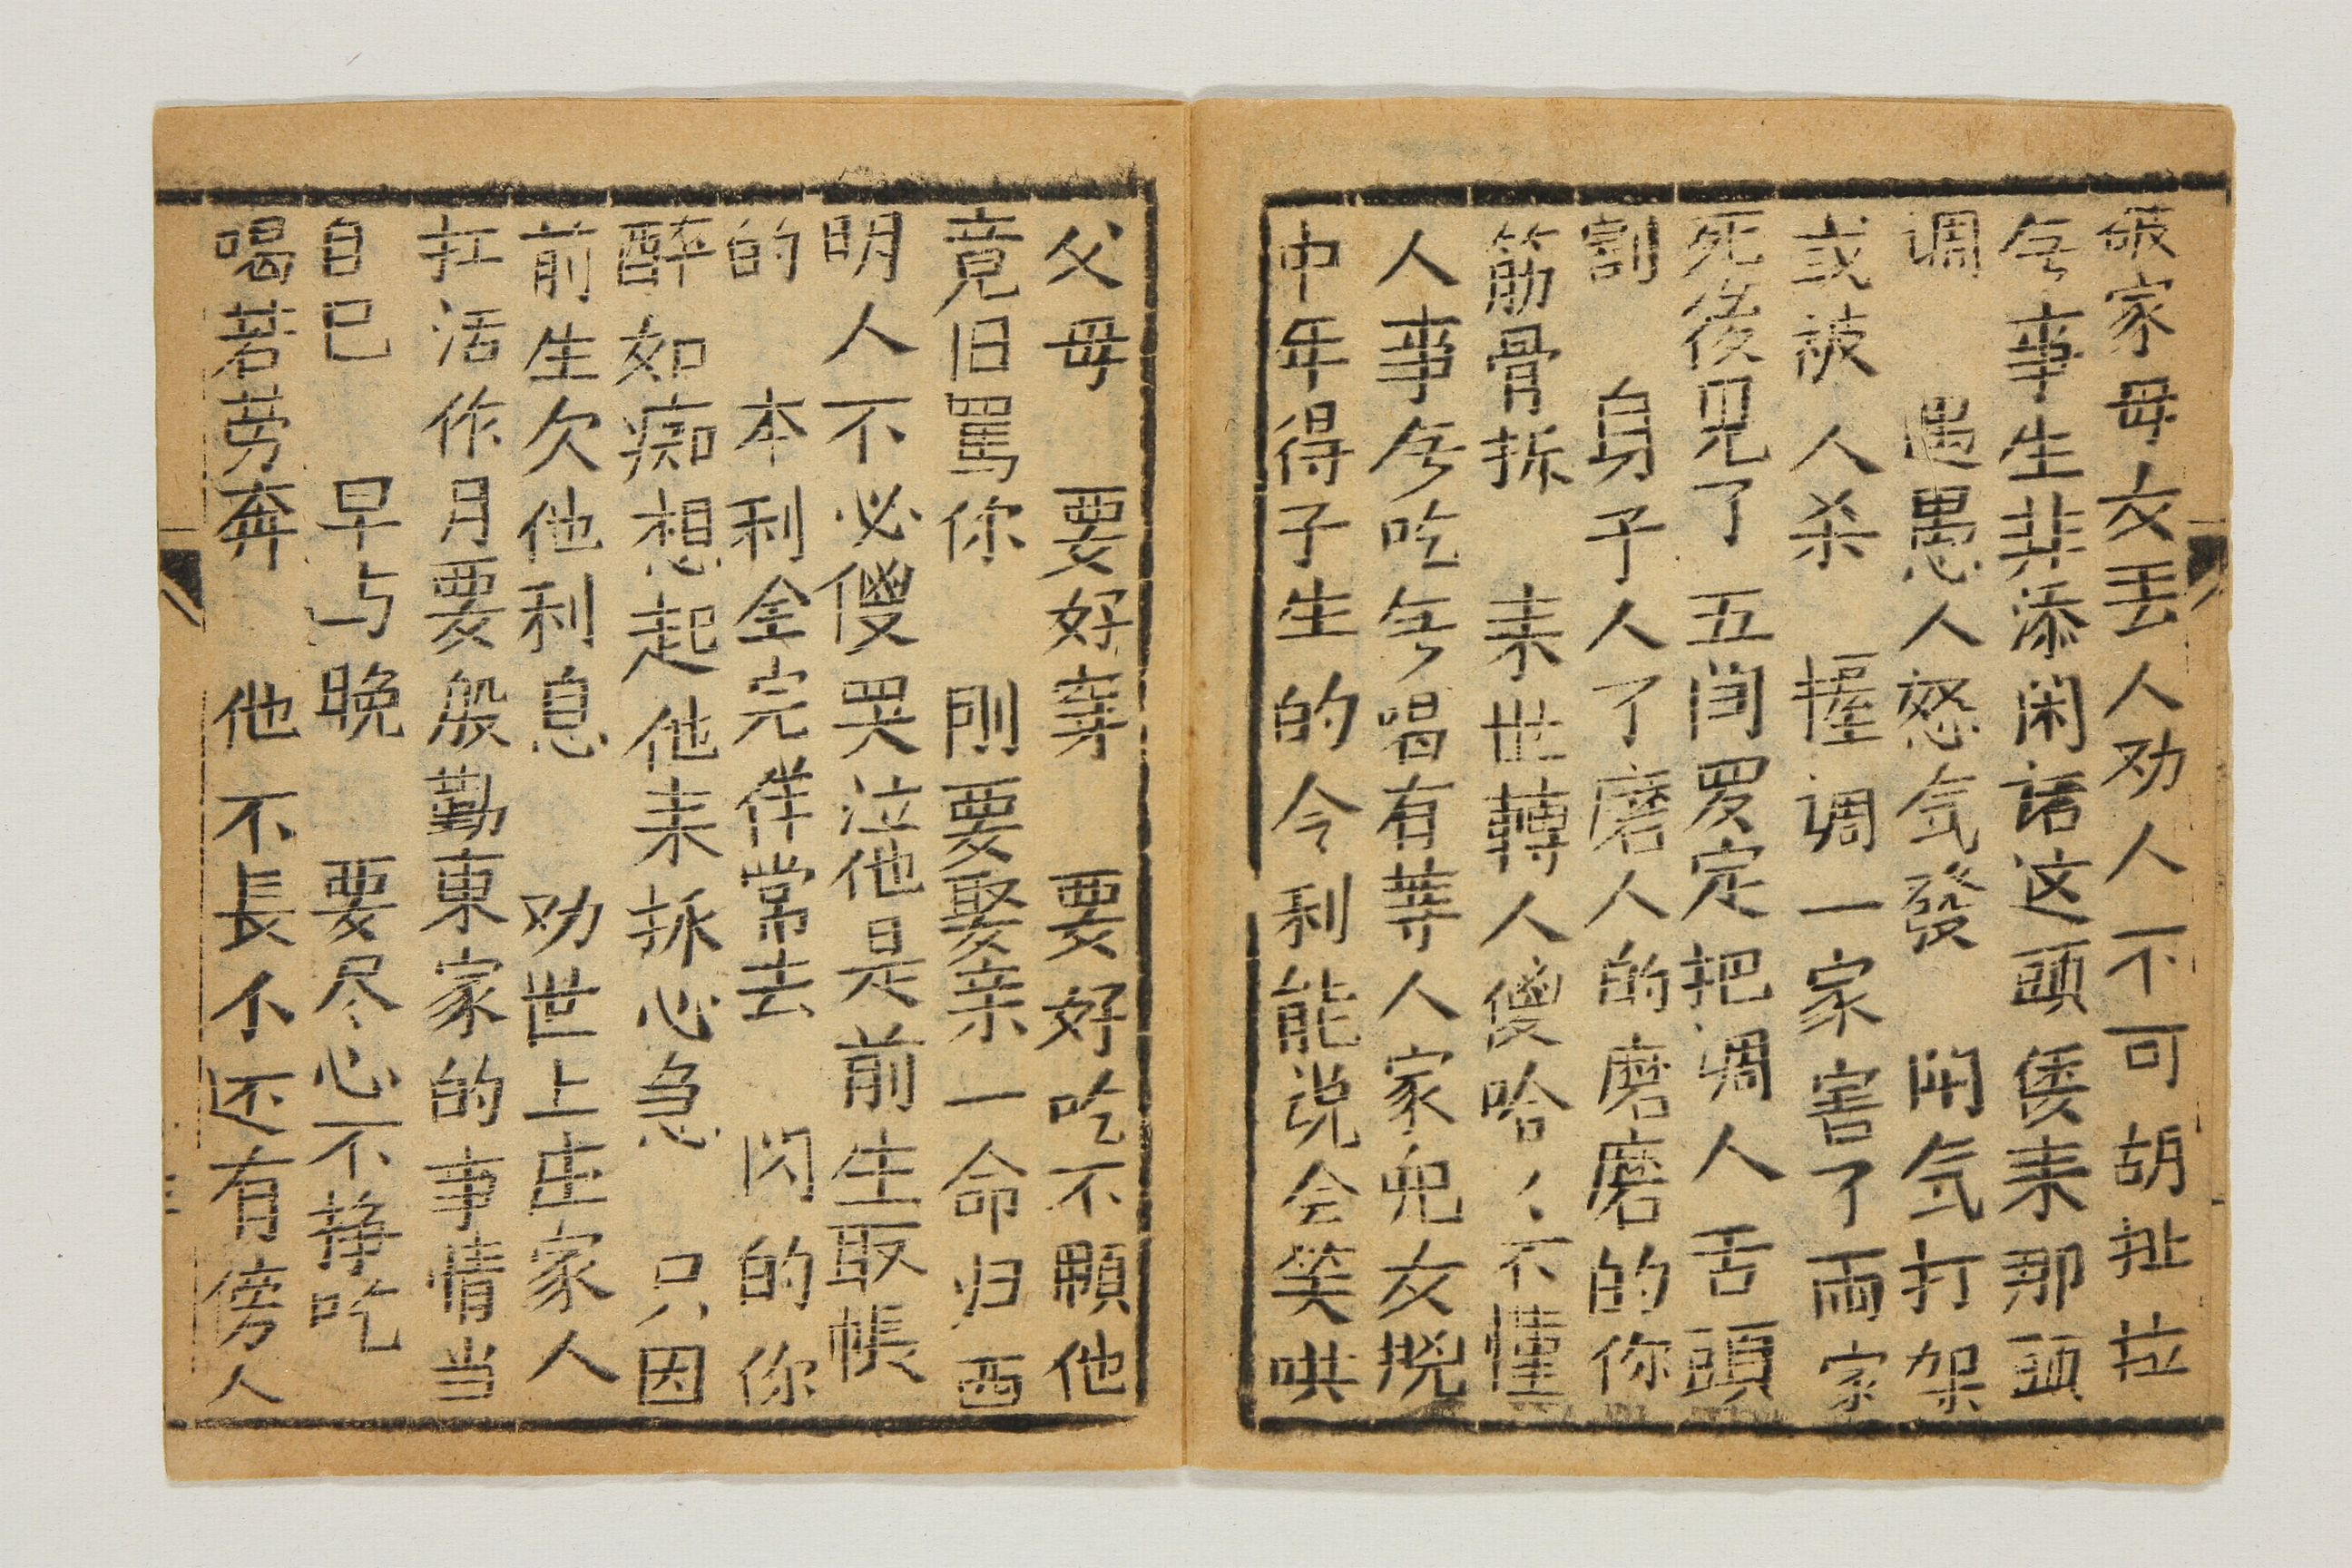 破家母女丢人劝人不可胡扯拉
𠂉事生非添闲话这頭传来那頭
调 遇愚人怒气發 闹气打架
或被人杀 挃调一家害了両家
死後見了 五闫罗定把调人舌頭
割 身子人了磨人的磨磨的你
筋骨拆 来世轉人傻哈〻不懂
人事𠂉吃𠂉喝有䓁人家児女挩
中年得子生的令利能说会笑哄
父母 要好穿 要好吃不顧他
竟旧罵你 刚要娶亲一命归西
明人不必傻哭泣他是前生取帳
的 本利全完徉常去 闪的你
醉如痴想起他来揪心急 只因
前生欠他利息 劝世上庄家人
扛活作月要殷勤東家的事情当
自己 早与晚 要尽心不挣吃
喝若劳奔 他不長个还有傍人